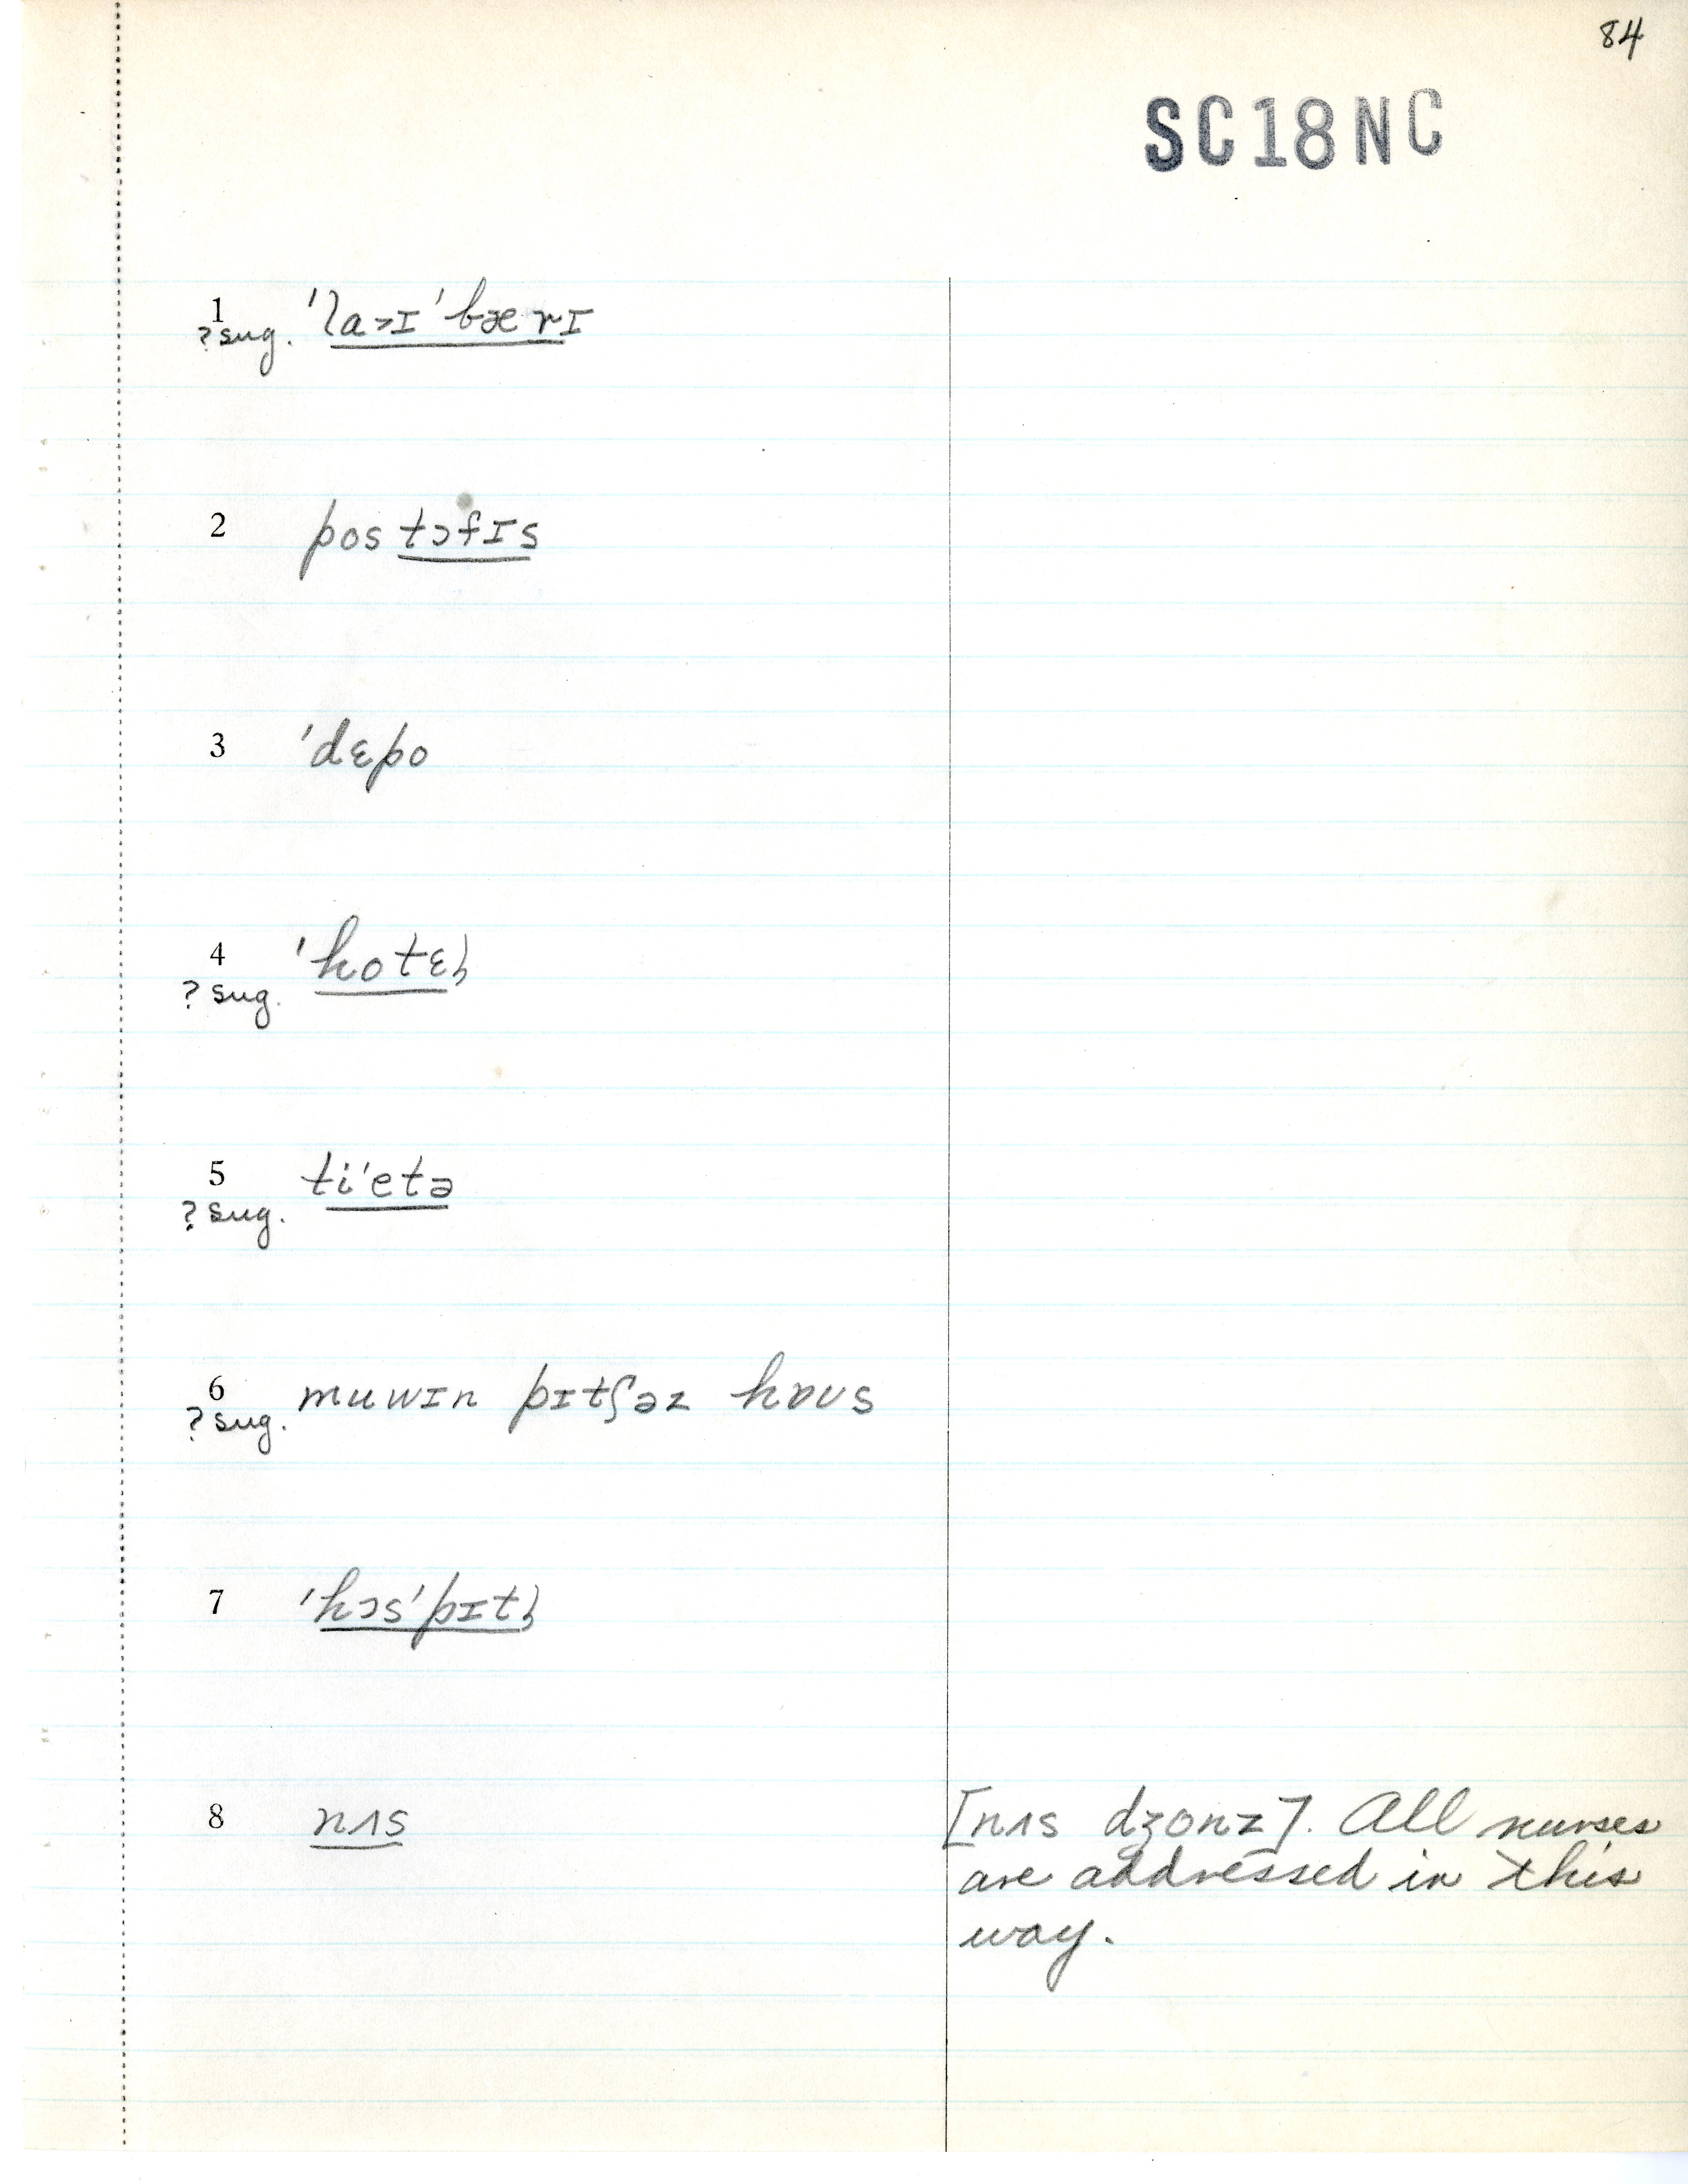 84
SC18NC
1 'la>ɪ'bærɪ
? sug.
2 postɔfɪs
3 'dɛpo
4 'hotɛl
? sug.
5 ti'etə
? sug.
6 muwɪn pɪtʃəz hɒʊs
? sug.
7 'hɔs'pɪtl
8 nʌs [nʌs dʒonz]. All nurses
are addressed in this
way.